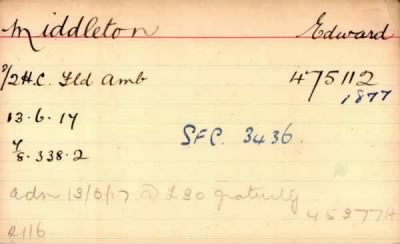 Middleton Edward
2/2 H.C. Fld Amb 475112
1877
13.6.17
SFC. 3436.
4/8.338.2
adm 13/6/17 @ £30 gratuity
45977/4
2116